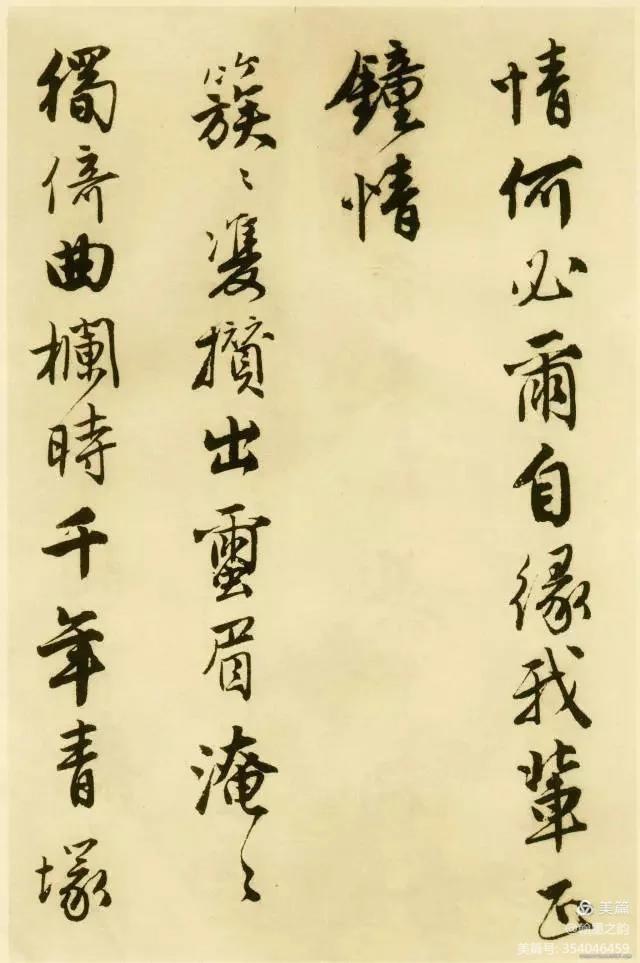 情何必爾自緣我輩正
鐘情
簇〻雙攢出蠶眉淹〻
獨倚曲欄時千年青塚
美篇
@翰墨之韵
美篇号: 354046459